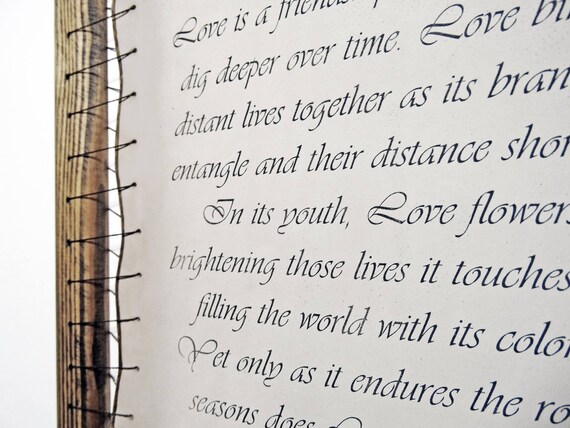 Love is a friends
dig deeper over time. Love bi
distant lives together as its bran
entangle and their distance shor
In its youth, Love flowers
brightening those lives it touches
filling the world with its color
Yet only as it endures the ro
seasons does